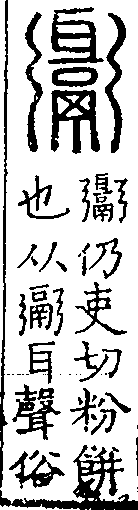 𩱓
𩱓仍吏切粉餅
也从䰜耳聲俗